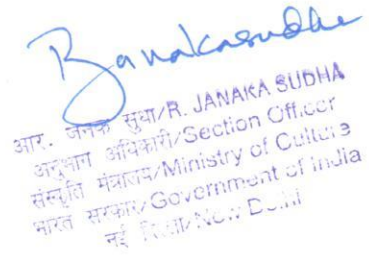 R. Janakasudha
आर. जनक सुधा/R. JANAKA SUDHA
अनुभाग अधिकारी/Section Officer
संस्कृति मंत्रालय/Ministry of Culture
भारत सरकार/Government of India
नई दिल्ली/New Delhi